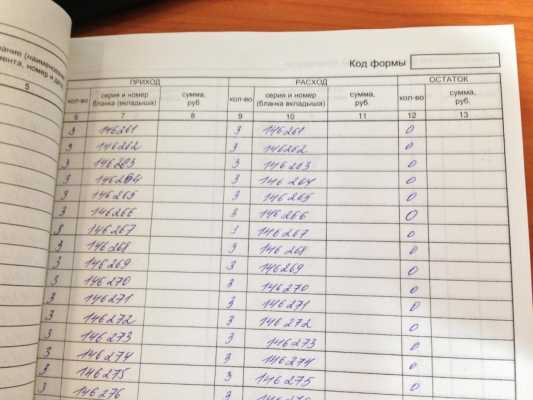 вания (наименование
мента, номер и дата
5
Код формы
ПРИХОД РАСХОД ОСТАТОК
кол-во серия и номер бланка (вкладыша) сумма, руб. кол-во серия и номер (бланка вкладыша) сумма, руб. кол-во сумма, руб.
6 7 8 9 10 11 12 13
3 146261 3 146261 0
3 146262 3 146262 0
3 146263 3 146263 0
3 146264 3 146264 0
3 146265 3 146265 0
3 146266 3 146266 0
3 146267 3 146267 0
3 146268 3 146268 0
3 146269 3 146269 0
3 146270 3 146270 0
3 146271 3 146271 0
3 146272 3 146272 0
3 146273 3 146273 0
3 146274 3 146274 0
3 146275 3 146275 0
3 146276